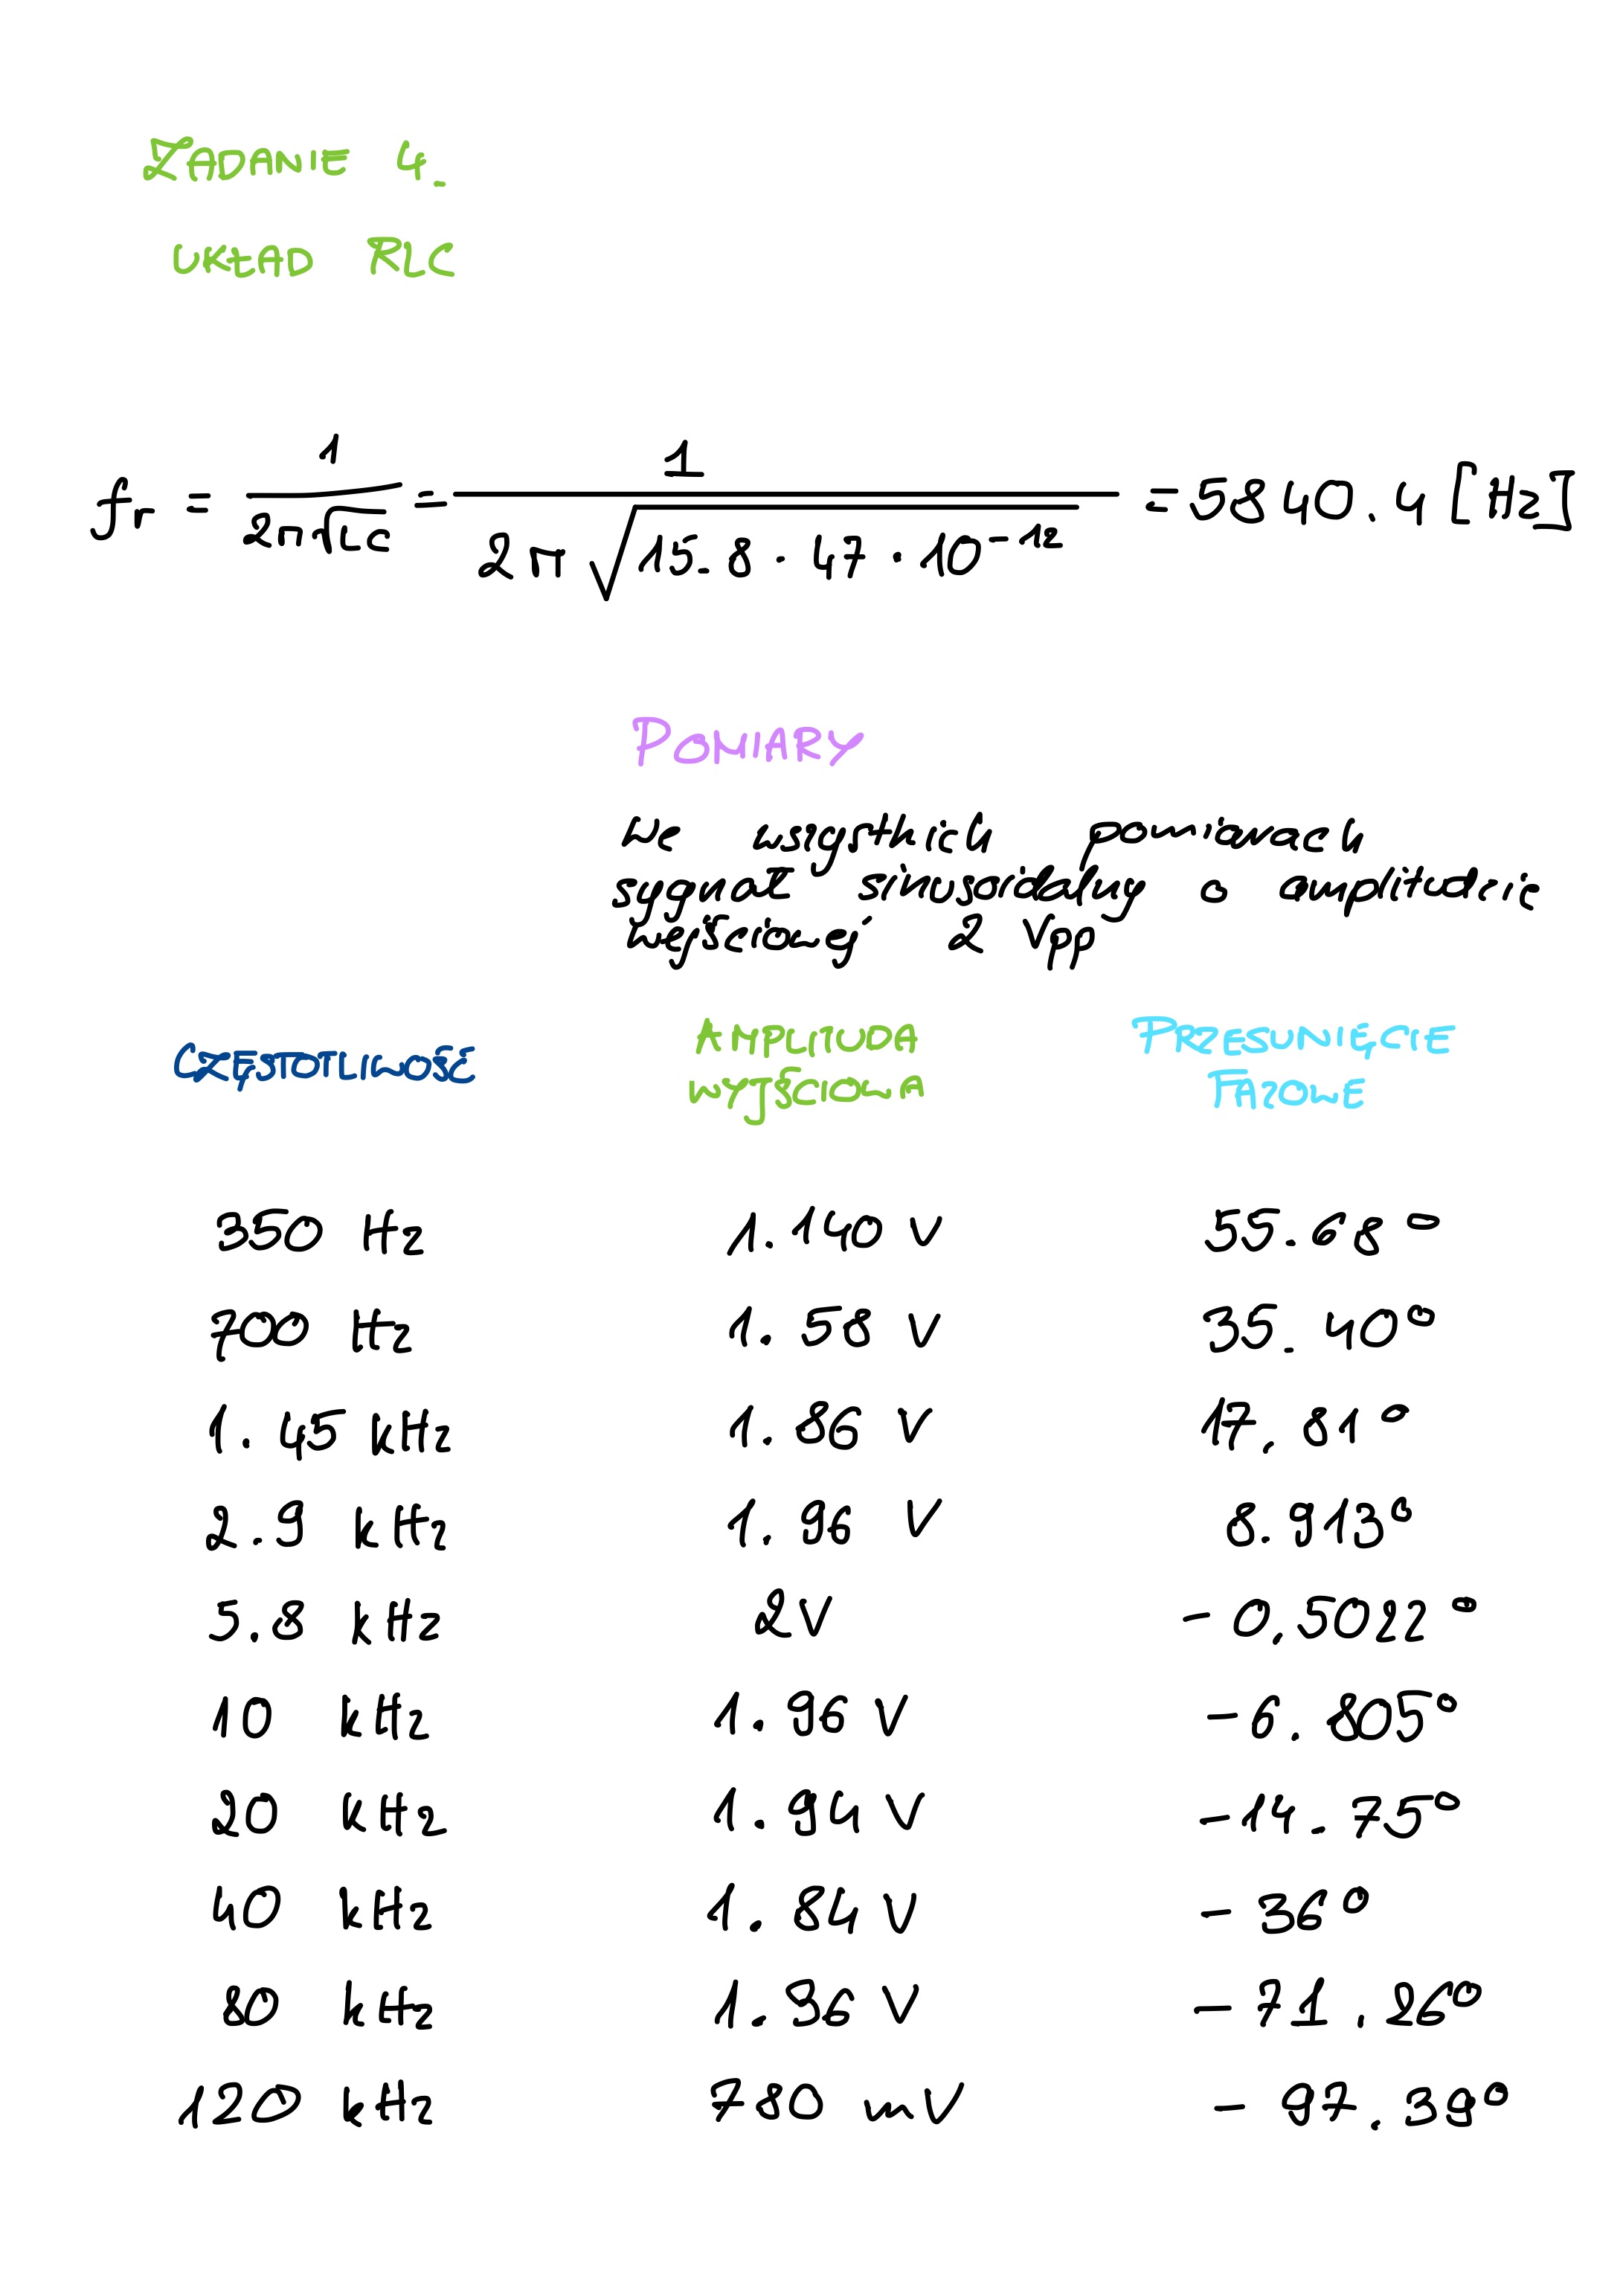 ZADANIE 4.
UKŁAD RLC
fr = 1/(2π√LC) = 1/(2π√(15.8 · 47 · 10^-12)) = 5840.4 [Hz]
POMIARY
We wszystkich pomiarach
sygnał sinusoidalny o amplitudzie
wejściowej 2 Vpp
CZĘSTOTLIWOŚĆ AMPLITUDA WYJŚCIOWA PRZESUNIĘCIE FAZOWE
350 Hz 1.140 V 55.68°
700 Hz 1.58 V 35.40°
1.45 kHz 1.86 V 17.81°
2.9 kHz 1.96 V 8.913°
5.8 kHz 2V -0.5022°
10 kHz 1.96 V -6.805°
20 kHz 1.94 V -14.75°
40 kHz 1.84 V -36°
80 kHz 1.36 V -71.26°
120 kHz 780 mV -97.39°